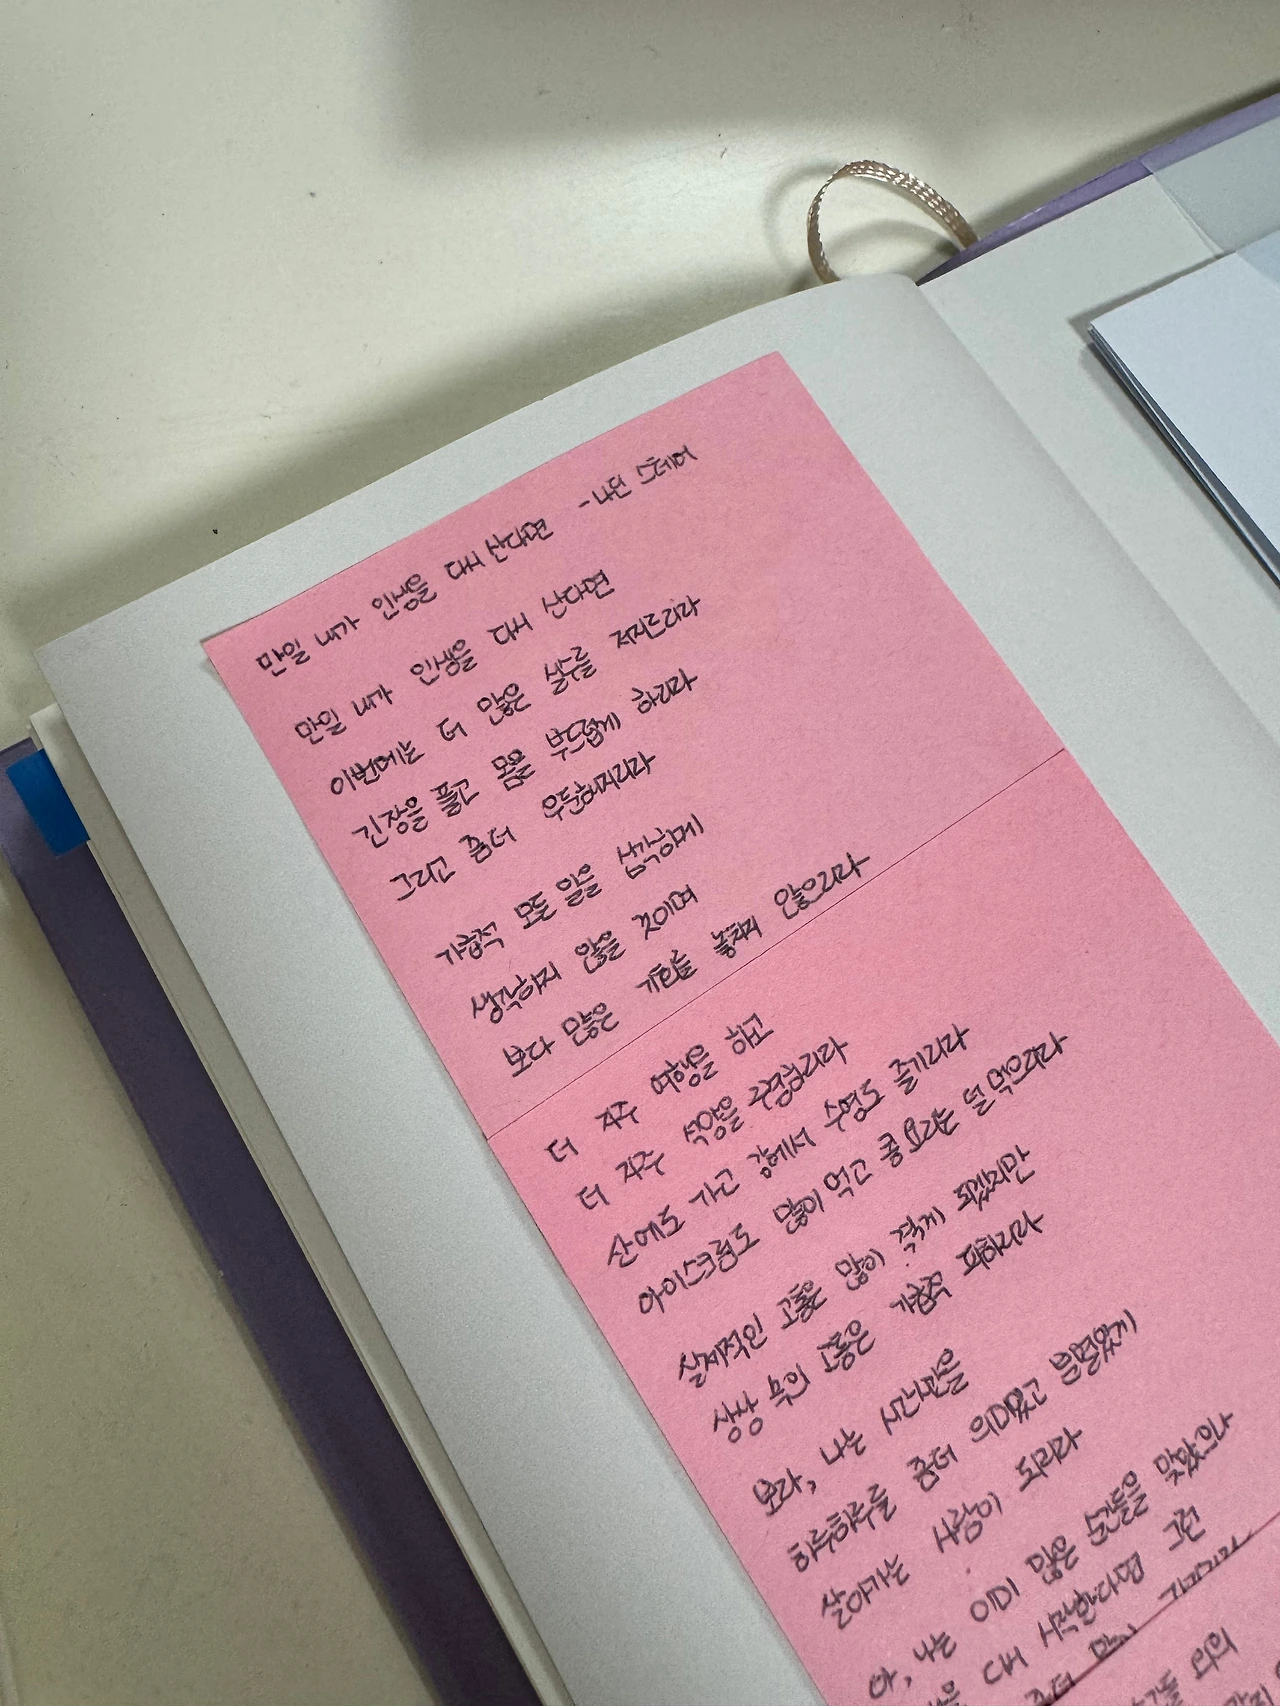 만일 내가 인생을 다시 산다면 - 나딘 스테어
만일 내가 인생을 다시 산다면
이번에는 더 많은 실수를 저지르리라
긴장을 풀고 몸을 부드럽게 하리라
그리고 좀더 우둔해지리라
가급적 모든 일을 심각하게
생각하지 않을 것이며
보다 많은 기회를 놓치지 않으리라
더 자주 여행을 하고
더 자주 석양을 구경하리라
산에도 가고 강에서 수영도 즐기리라
아이스크림도 많이 먹고 콩요리는 덜 먹으리라
실제적인 고통은 많이 겪게 되겠지만
상상 속의 고통은 가급적 피하리라
보라, 나는 시간시간을
하루하루를 좀더 의미있고 분별있게
살아가는 사람이 되리라
아, 나는 이미 많은 순간들을 맞았으나
다시 시작한다면 그런
좀더 많이